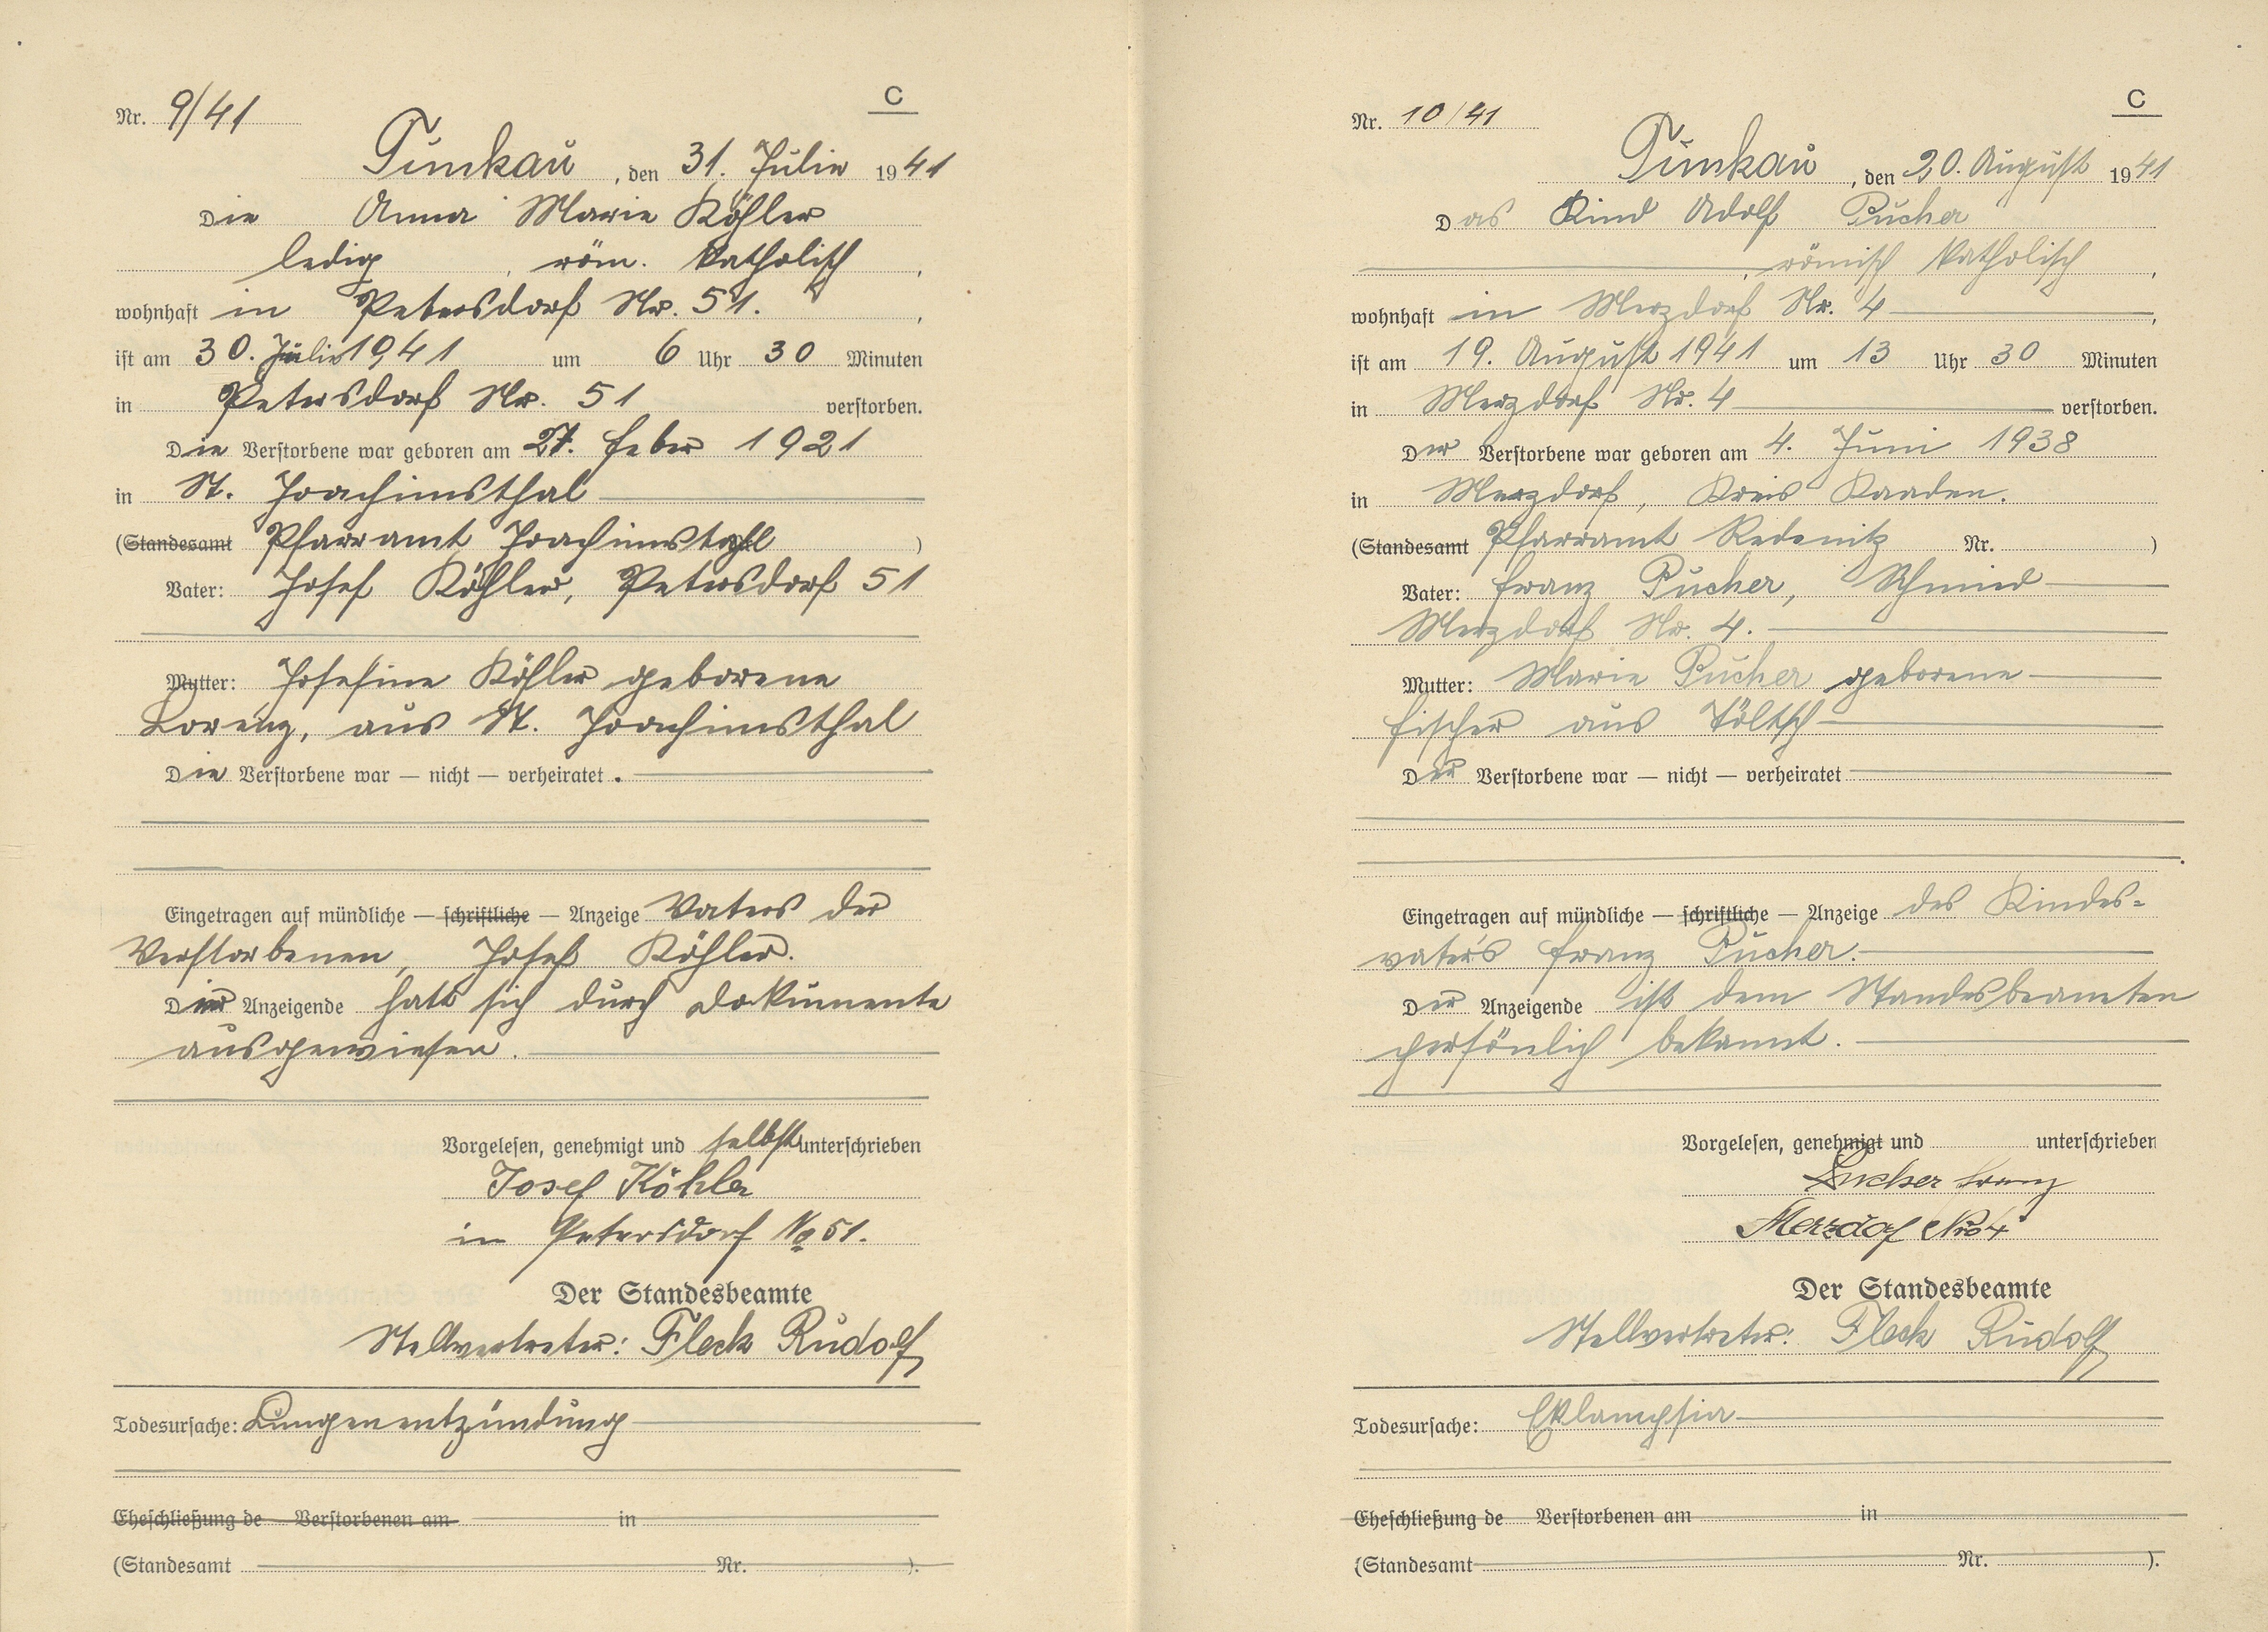 C
Nr. 9/41
Tunkau, den 31. Julie 1941
Die Anna Marie Köhler
ledig, röm. katholisch,
wohnhaft in Petersdorf Nr. 51.,
ist am 30. Julie 1941 um 6 Uhr 30 Minuten
in Petersdorf Nr. 51 verstorben.
Die Verstorbene war geboren am 27. feber 1921
in St. Joachimsthal
(Standesamt Pfarramt Joachimstahl)
Vater: Josef Köhler, Petersdorf 51
Mutter: Josefine Köhler geborene
Lorenz, aus St. Joachimsthal
Die Verstorbene war — nicht — verheiratet.
Eingetragen auf mündliche — schriftliche — Anzeige Vaters der
Verstorbenen, Josef Köhler.
Der Anzeigende hatt sich durch Dokumente
ausgewiesen.
Vorgelesen, genehmigt und selbst unterschrieben
Josef Köhler
in Petersdorf No 51.
Der Standesbeamte
Stellvertreter: Fleck Rudolf
Todesursache: Lungenentzündung
Eheschließung de Verstorbenen am in
(Standesamt Nr. ).
C
Nr. 10/41
Tunkau, den 20. August 1941
Das Kind Adolf Pucher
, römisch katholisch,
wohnhaft in Merzdorf Nr. 4,
ist am 19. August 1941 um 13 Uhr 30 Minuten
in Merzdorf Nr. 4 verstorben.
Der Verstorbene war geboren am 4. Juni 1938
in Merzdorf, Kreis Kaaden.
(Standesamt Pfarramt Redenitz Nr. )
Vater: Franz Pucher, Schmied
Merzdorf Nr. 4.
Mutter: Marie Pucher geborene
Fischer aus Töltsch
Der Verstorbene war — nicht — verheiratet
Eingetragen auf mündliche — schriftliche — Anzeige des Kindes=
vaters Franz Pucher.
Der Anzeigende ist dem Standesbeamten
persönlich bekannt.
Vorgelesen, genehmigt und unterschrieben
Pucher Franz
Merzdof Nro 4
Der Standesbeamte
Stellvertreter: Fleck Rudolf
Todesursache: Eklampsie
Eheschließung de Verstorbenen am in
(Standesamt Nr. ).